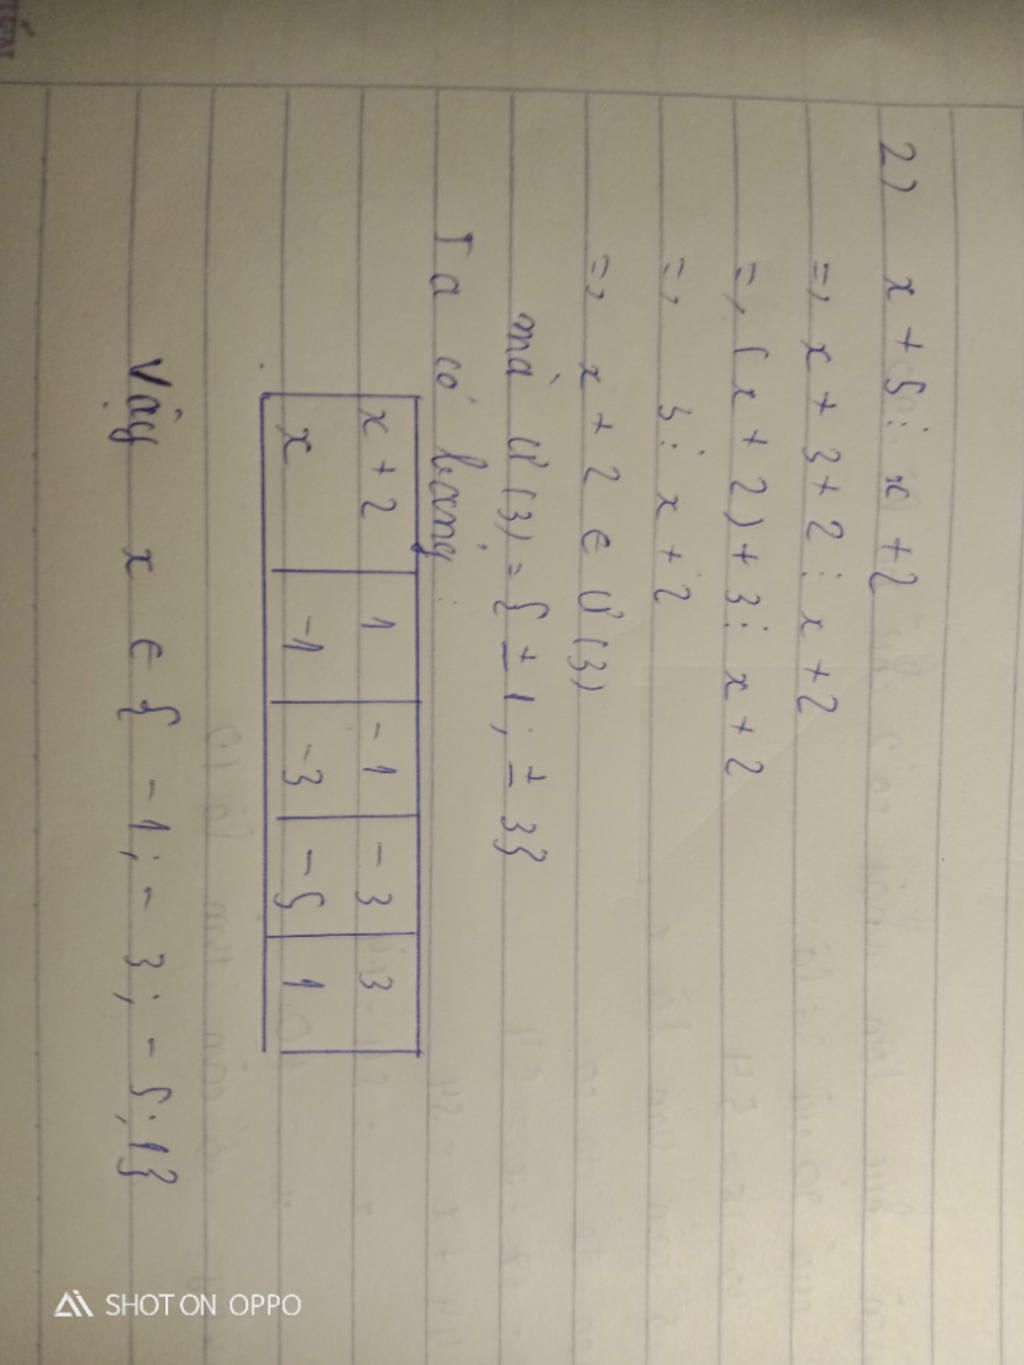 2) x + 5 ⋮ x + 2
=> x + 3 + 2 ⋮ x + 2
=> (x + 2) + 3 ⋮ x + 2
=> 3 ⋮ x + 2
=> x + 2 ∈ Ư(3)
mà Ư(3) = {±1; ±3}
Ta có bảng:
x + 2 1 -1 -3 3
x -1 -3 -5 1
Vậy x ∈ {-1; -3; -5; 1}
SHOT ON OPPO